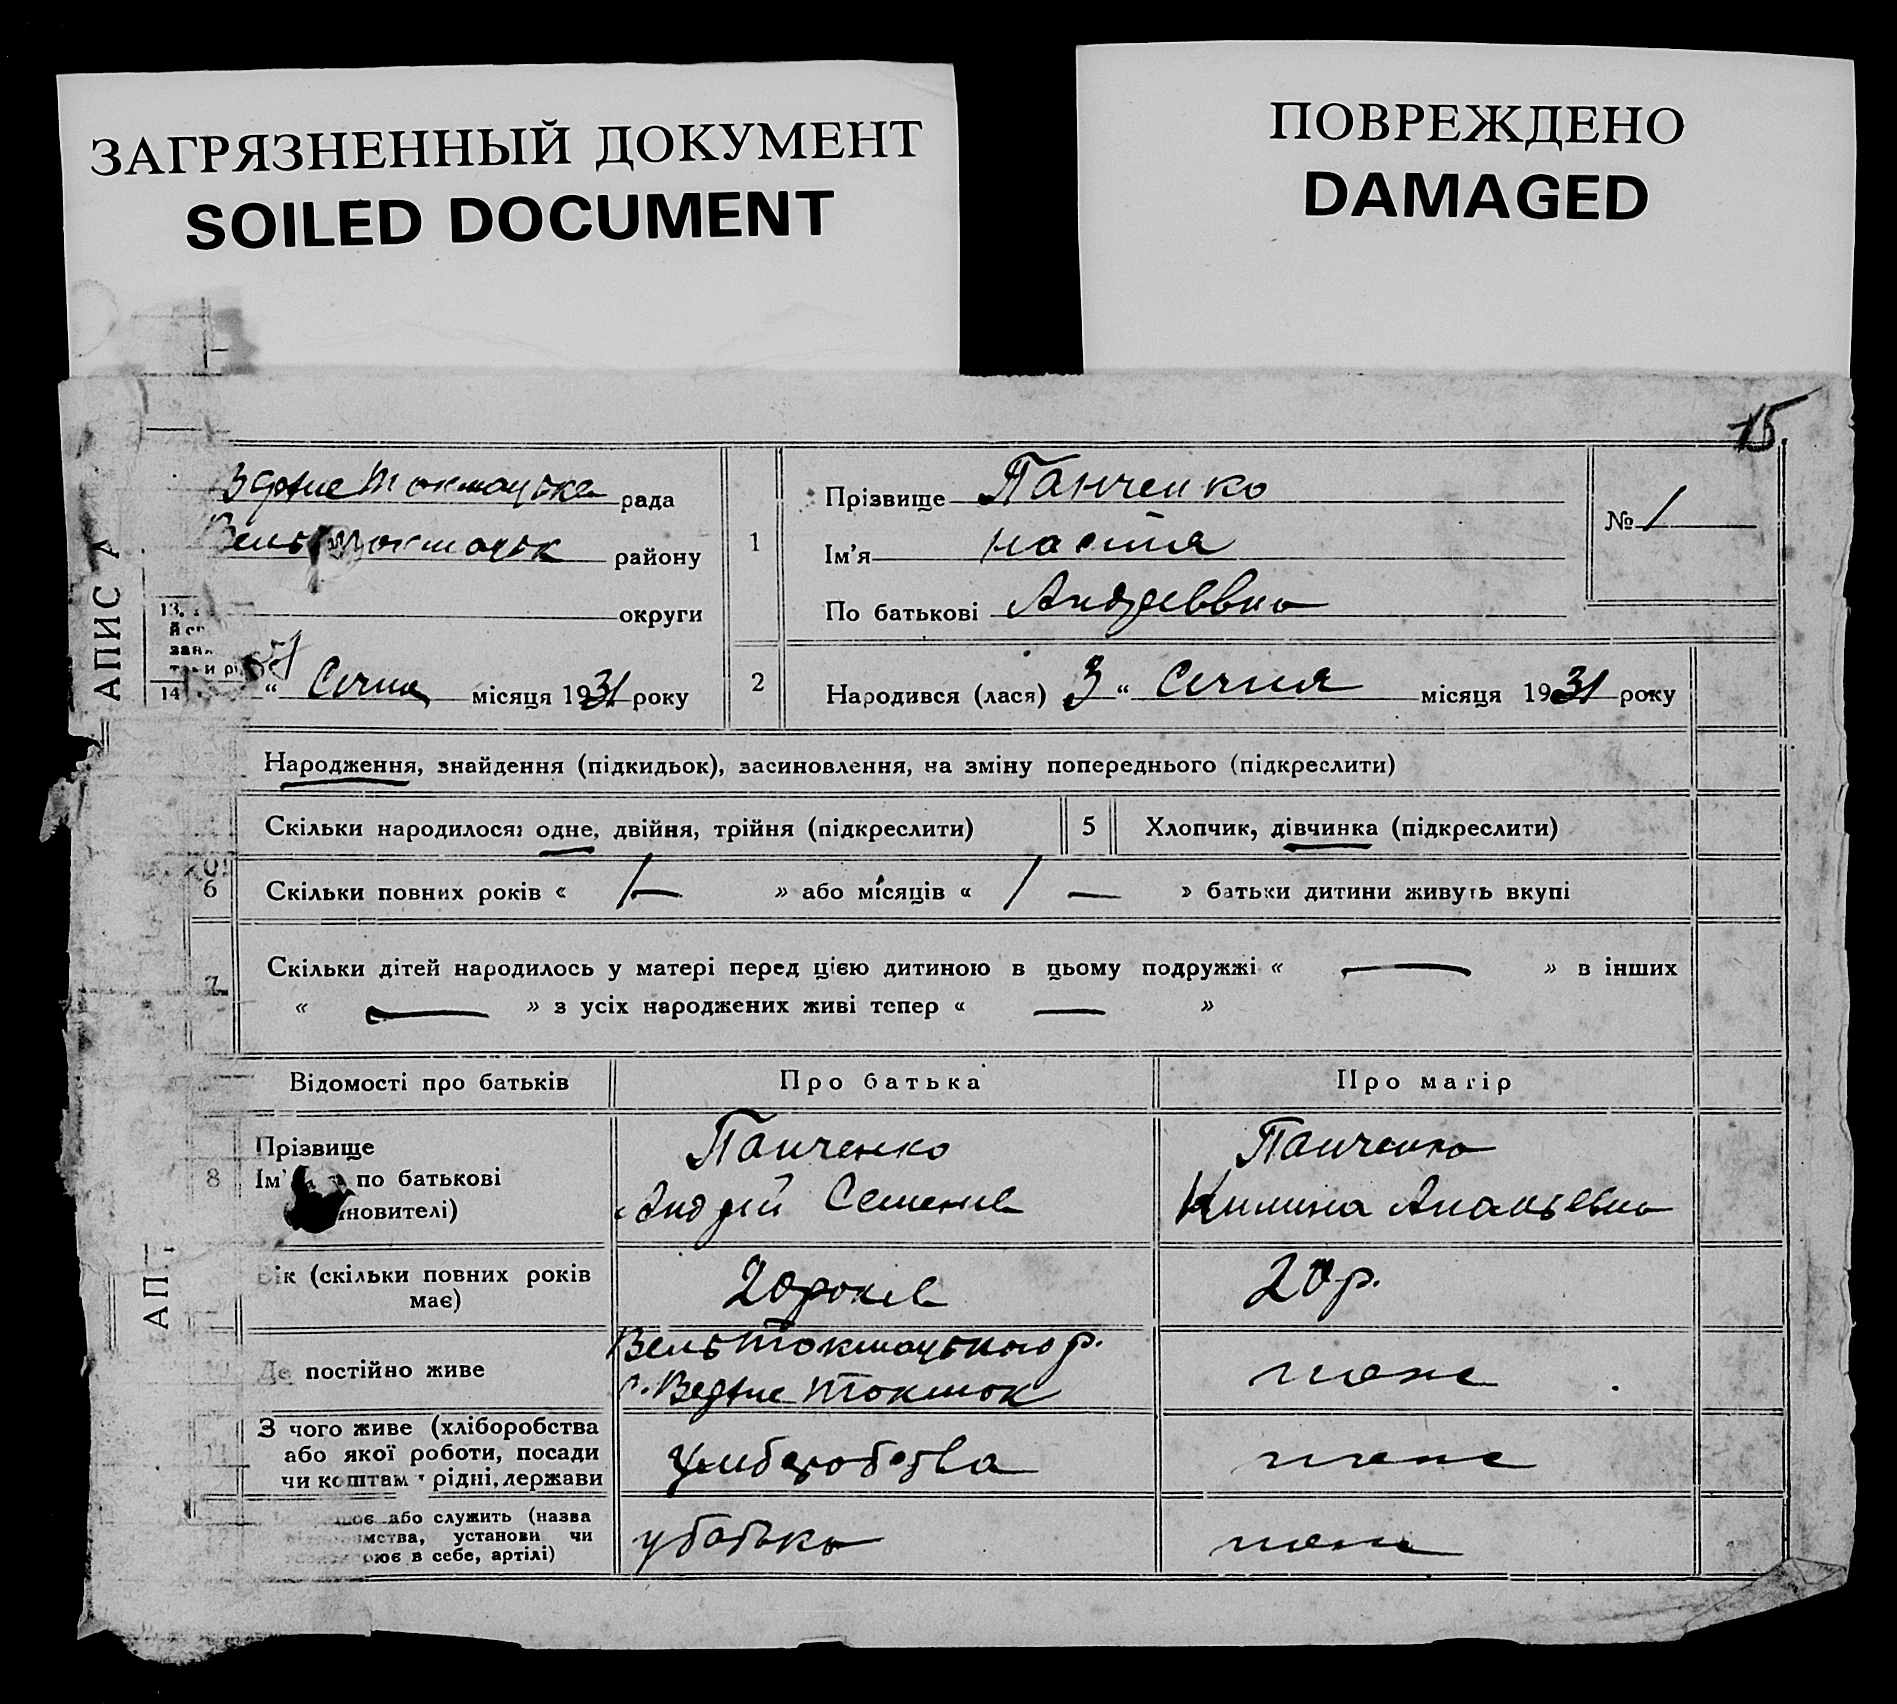 ЗАГРЯЗНЕННЫЙ ДОКУМЕНТ
SOILED DOCUMENT
ПОВРЕЖДЕНО
DAMAGED
15.
АПИС А
рада
району
округи
13.
14
" Січня місяця 1931 року
1
Прізвище Панченко
Ім'я Настя
По батькові Андреєвна
№ 1
2
Народився (лася) 3 " Січня місяця 1931 року
Народження, знайдення (підкидьок), засиновлення, на зміну попереднього (підкреслити)
Скільки народилося: одне, двійня, трійня (підкреслити)
5
Хлопчик, дівчинка (підкреслити)
6
Скільки повних років « — » або місяців « — » батьки дитини живуть вкупі
7
Скільки дітей народилось у матері перед цією дитиною в цьому подружжі « — » в інших
« — » з усіх народжених живі тепер « — »
Відомості про батьків
Про батька
Про матір
8
Прізвище
по батькові
новителі)
Панченко
Андрій Семенов
Панченко
Килина Ананьевна
Вік (скільки повних років
має)
20 років
20 р.
Де постійно живе
Вель Токмацького р.
Токмак
тоже
З чого живе (хліборобства
або якої роботи, посади
чи коштам рідні, держави
тоже
або служить (назва
установи чи
в себе, артілі)
у батька
тоже
АП